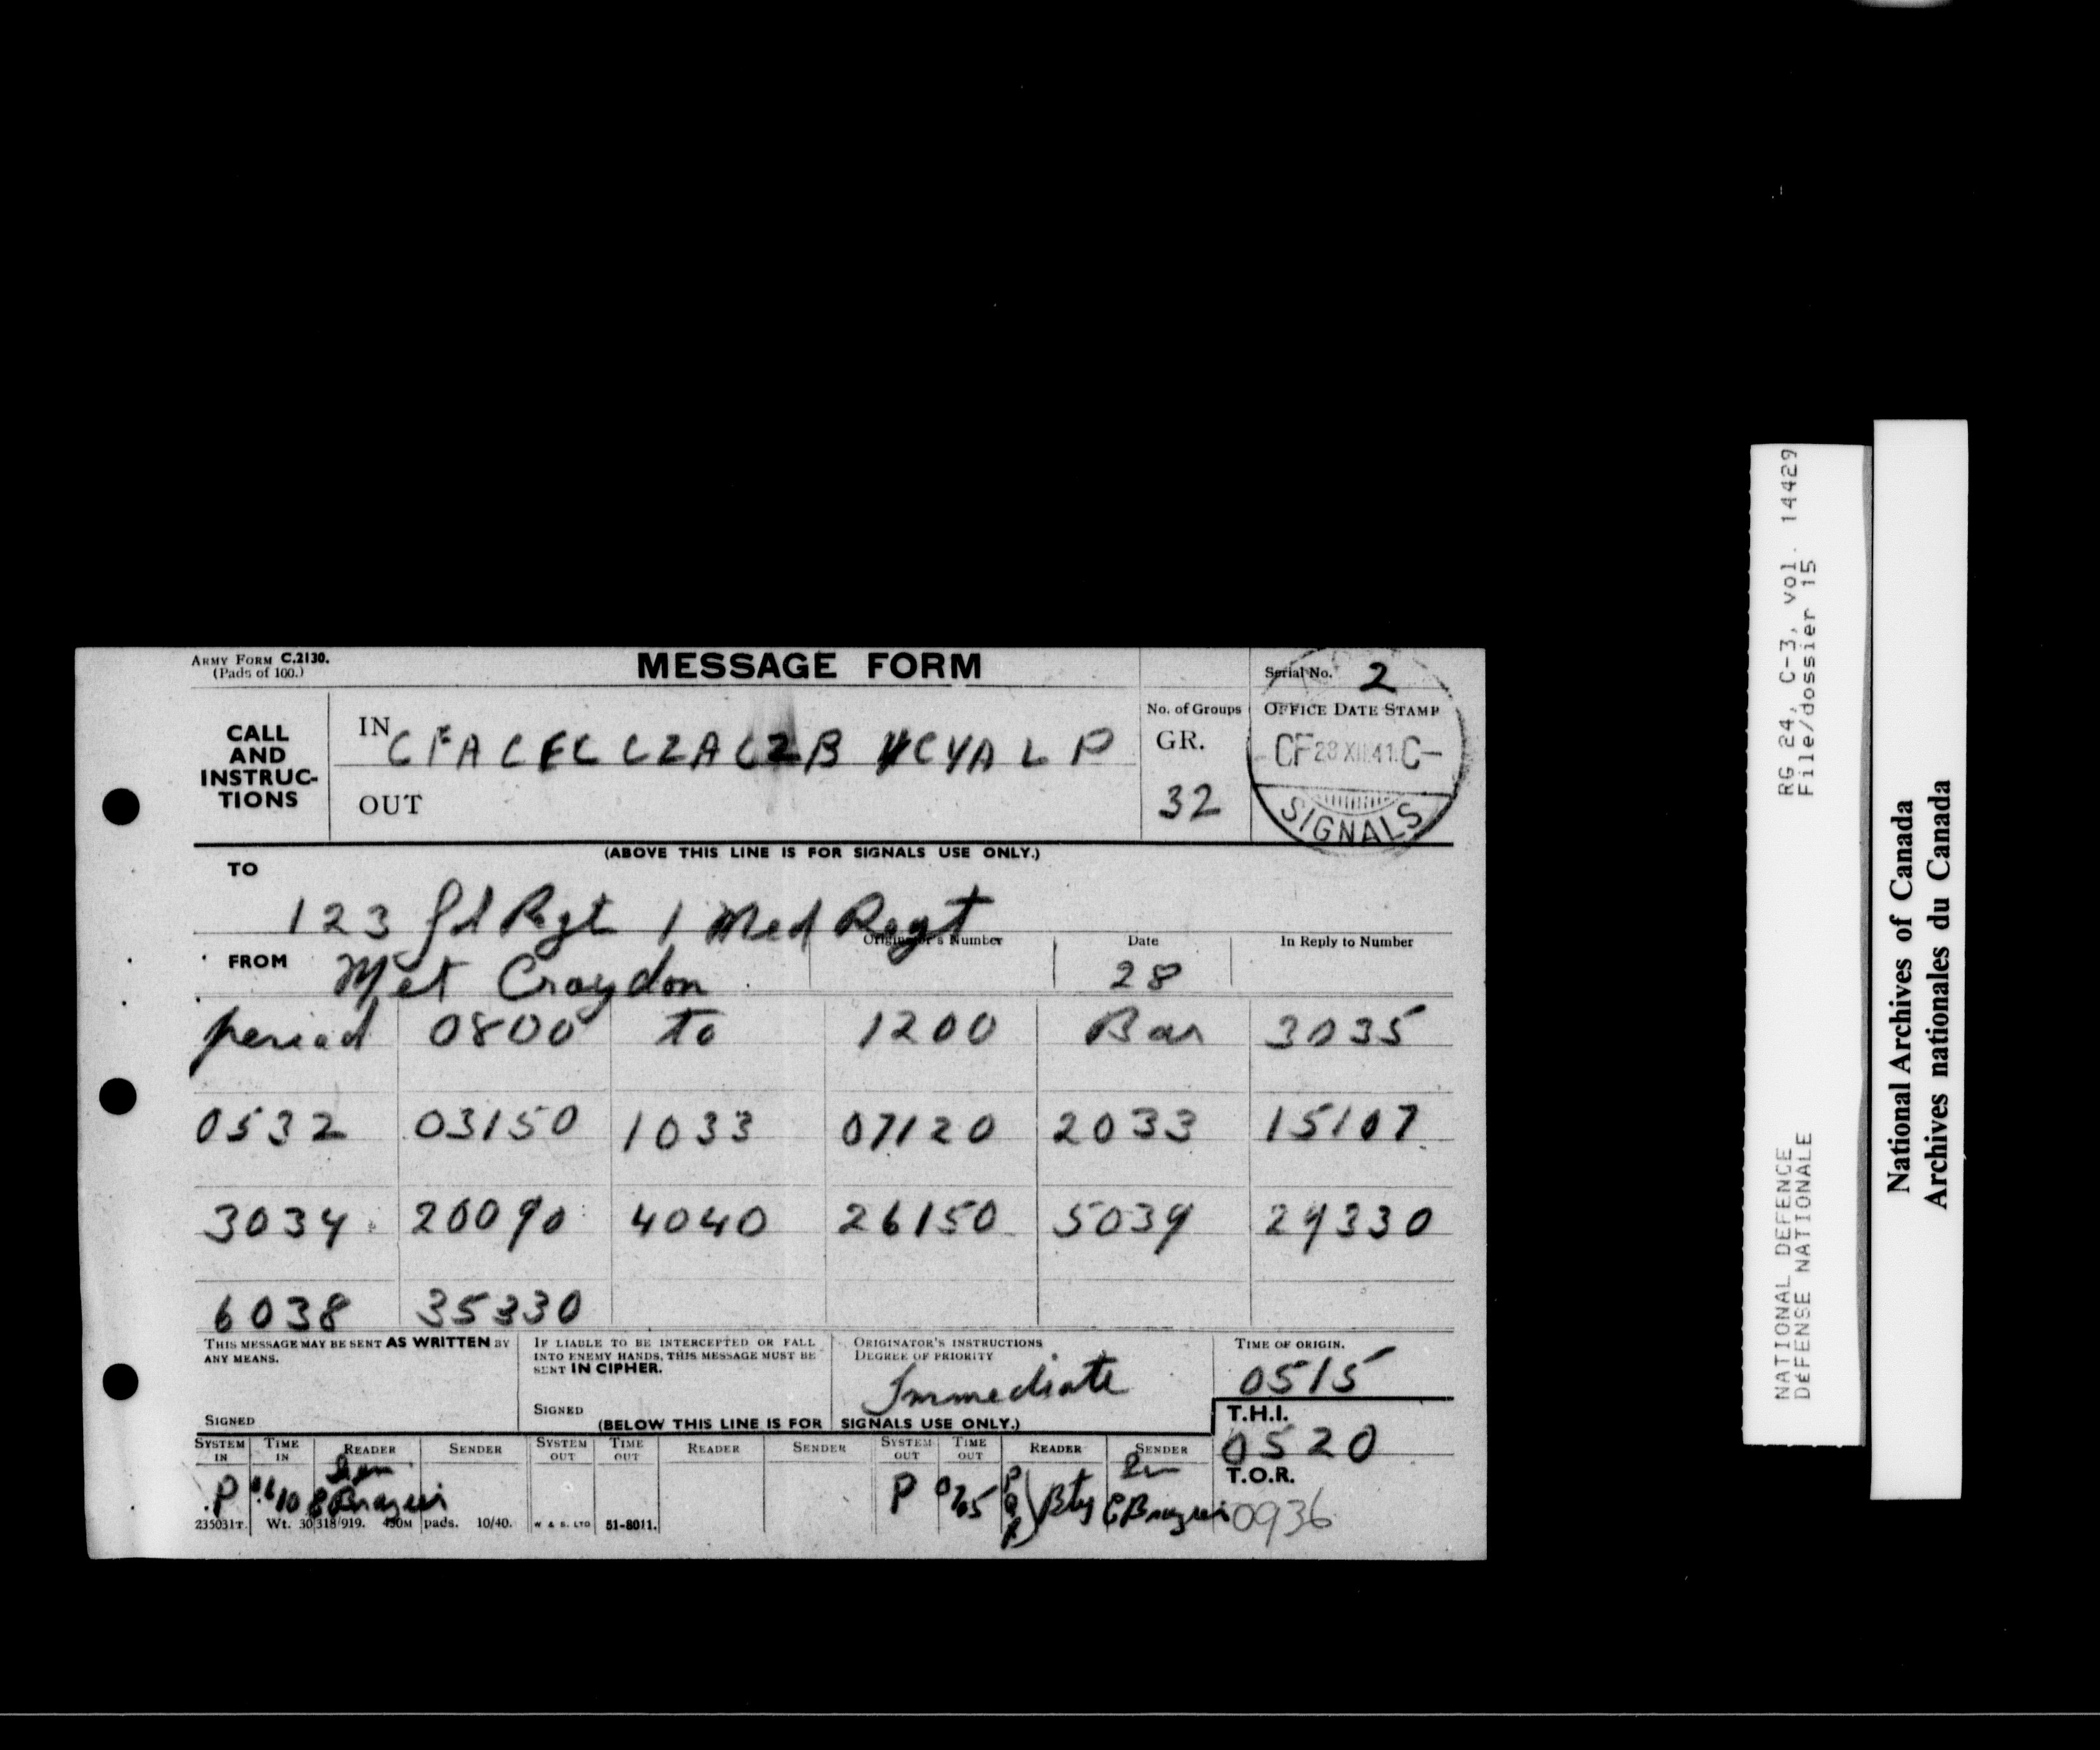 ARMY FORM C.2130.
(Pads of 100.)
MESSAGE FORM
Serial No. 2
CALL AND INSTRUCTIONS
IN CFACFC CZACZB VCYA L P
OUT
No. of Groups
GR.
32
OFFICE DATE STAMP
CF 28 XII.41. C-
SIGNALS
(ABOVE THIS LINE IS FOR SIGNALS USE ONLY.)
TO
1 2 3 fd Regt 1 Med Regt
FROM Met Croydon
Originator's Number
Date
28
In Reply to Number
period 0800 to 1200 Bar 3035
0532 03150 1033 07120 2033 15107
3034 20090 4040 26150 5039 29330
6038 35330
THIS MESSAGE MAY BE SENT AS WRITTEN BY ANY MEANS.
SIGNED
IF LIABLE TO BE INTERCEPTED OR FALL INTO ENEMY HANDS, THIS MESSAGE MUST BE SENT IN CIPHER.
SIGNED
ORIGINATOR'S INSTRUCTIONS
DEGREE OF PRIORITY
Immediate
TIME OF ORIGIN.
0515
(BELOW THIS LINE IS FOR SIGNALS USE ONLY.)
T.H.I.
0520
T.O.R.
0936
SYSTEM IN TIME IN READER SENDER SYSTEM OUT TIME OUT READER SENDER SYSTEM OUT TIME OUT READER SENDER
P Brazier P Bty Brazier
235031T. Wt. 30318/919. 450M pads. 10/40. W & S. LTD 51-8011.
RG 24, C-3, vol. 14429
File/dossier 15
NATIONAL DEFENCE
DÉFENSE NATIONALE
National Archives of Canada
Archives nationales du Canada